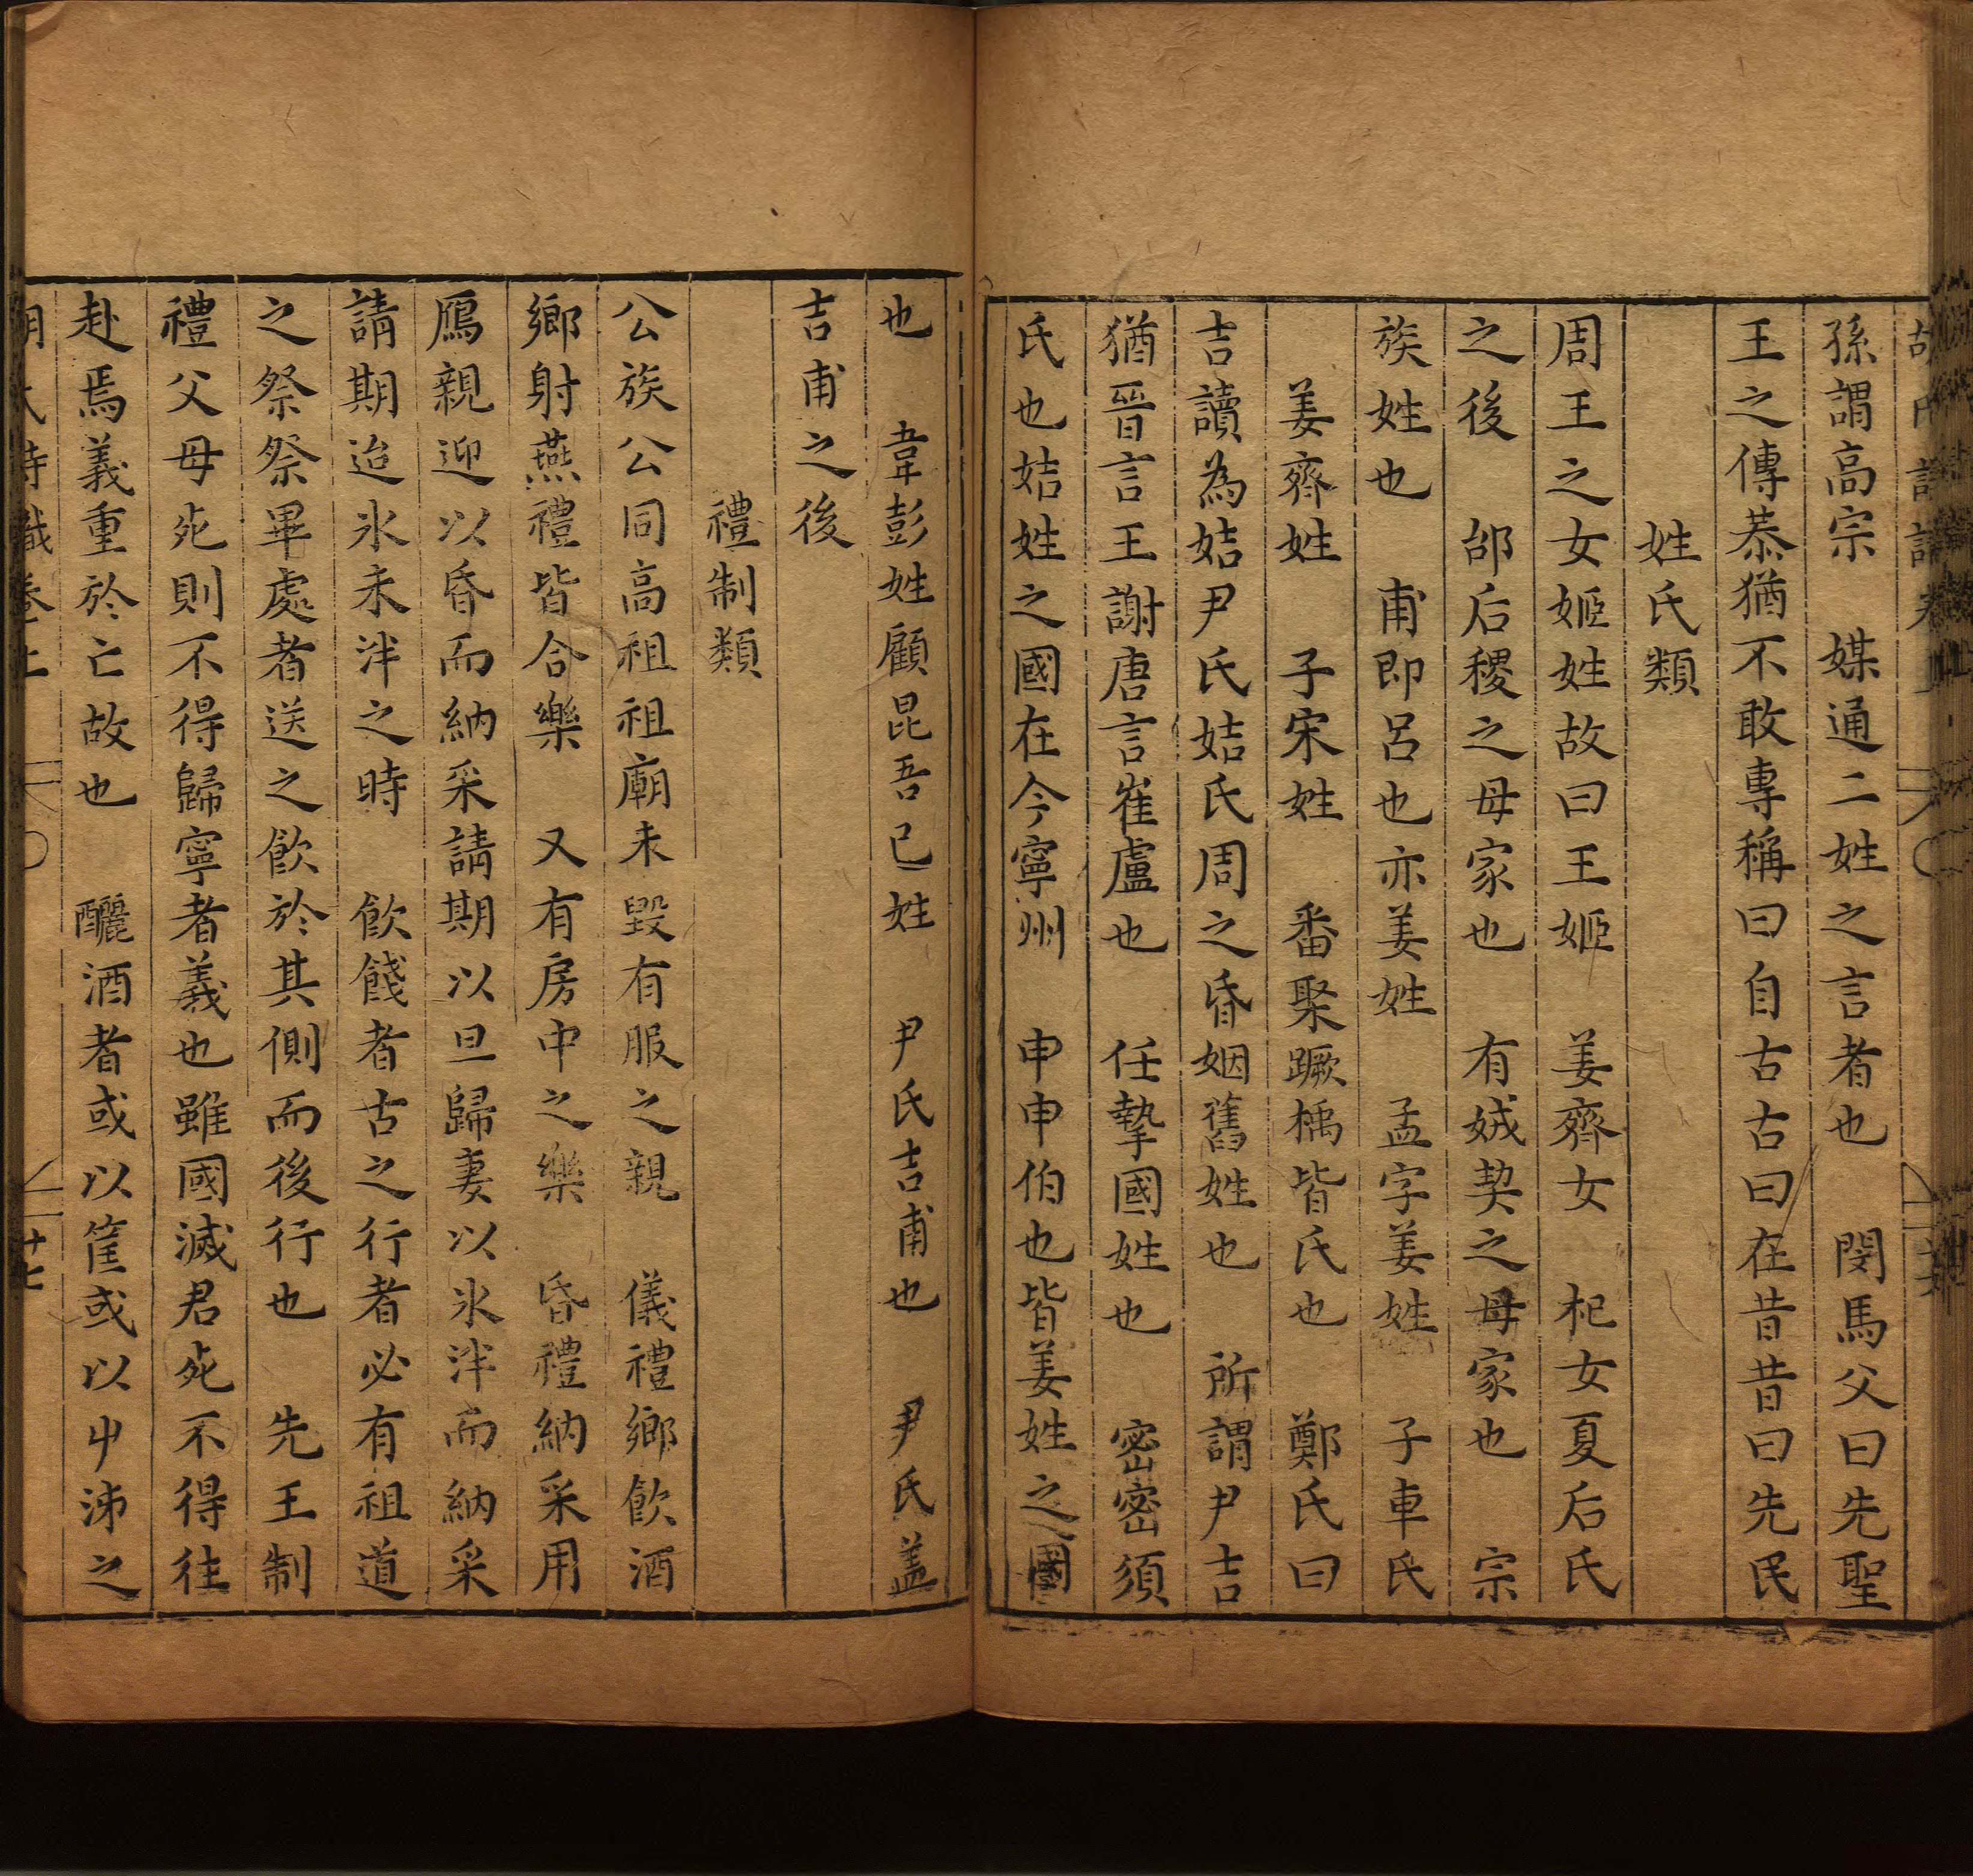 孫謂高宗　媒通二姓之言者也　閔馬父曰先聖
王之傳恭猶不敢專稱曰自古古曰在昔昔曰先民
姓氏類
周王之女姬姓故曰王姬　姜齊女　杞女夏后氏
之後　邰后稷之母家也　有娀契之母家也　宗
族姓也　甫即呂也亦姜姓　孟字姜姓　子車氏
姜齊姓　子宋姓　番聚蹶楀皆氏也　鄭氏曰
吉讀為姞尹氏姞氏周之昏姻舊姓也　所謂尹吉
猶晉言王謝唐言崔盧也　任摯國姓也　密密須
氏也姞姓之國在今寧州　申申伯也皆姜姓之國
也　韋彭姓顧昆吾已姓　尹氏吉甫也　尹氏盖
吉甫之後
禮制類
公族公同高祖祖廟未毀有服之親　儀禮鄉飲酒
鄉射燕禮皆合樂　又有房中之樂　昏禮納采用
鴈親迎以昏而納采請期以旦歸妻以氷泮而納采
請期迨氷未泮之時　飲餞者古之行者必有祖道
之祭祭畢處者送之飲於其側而後行也　先王制
禮父母死則不得歸寧者義也雖國滅君死不得往
赴焉義重於亡故也　釃酒者或以筐或以屮泲之
氏詩識卷上　十七